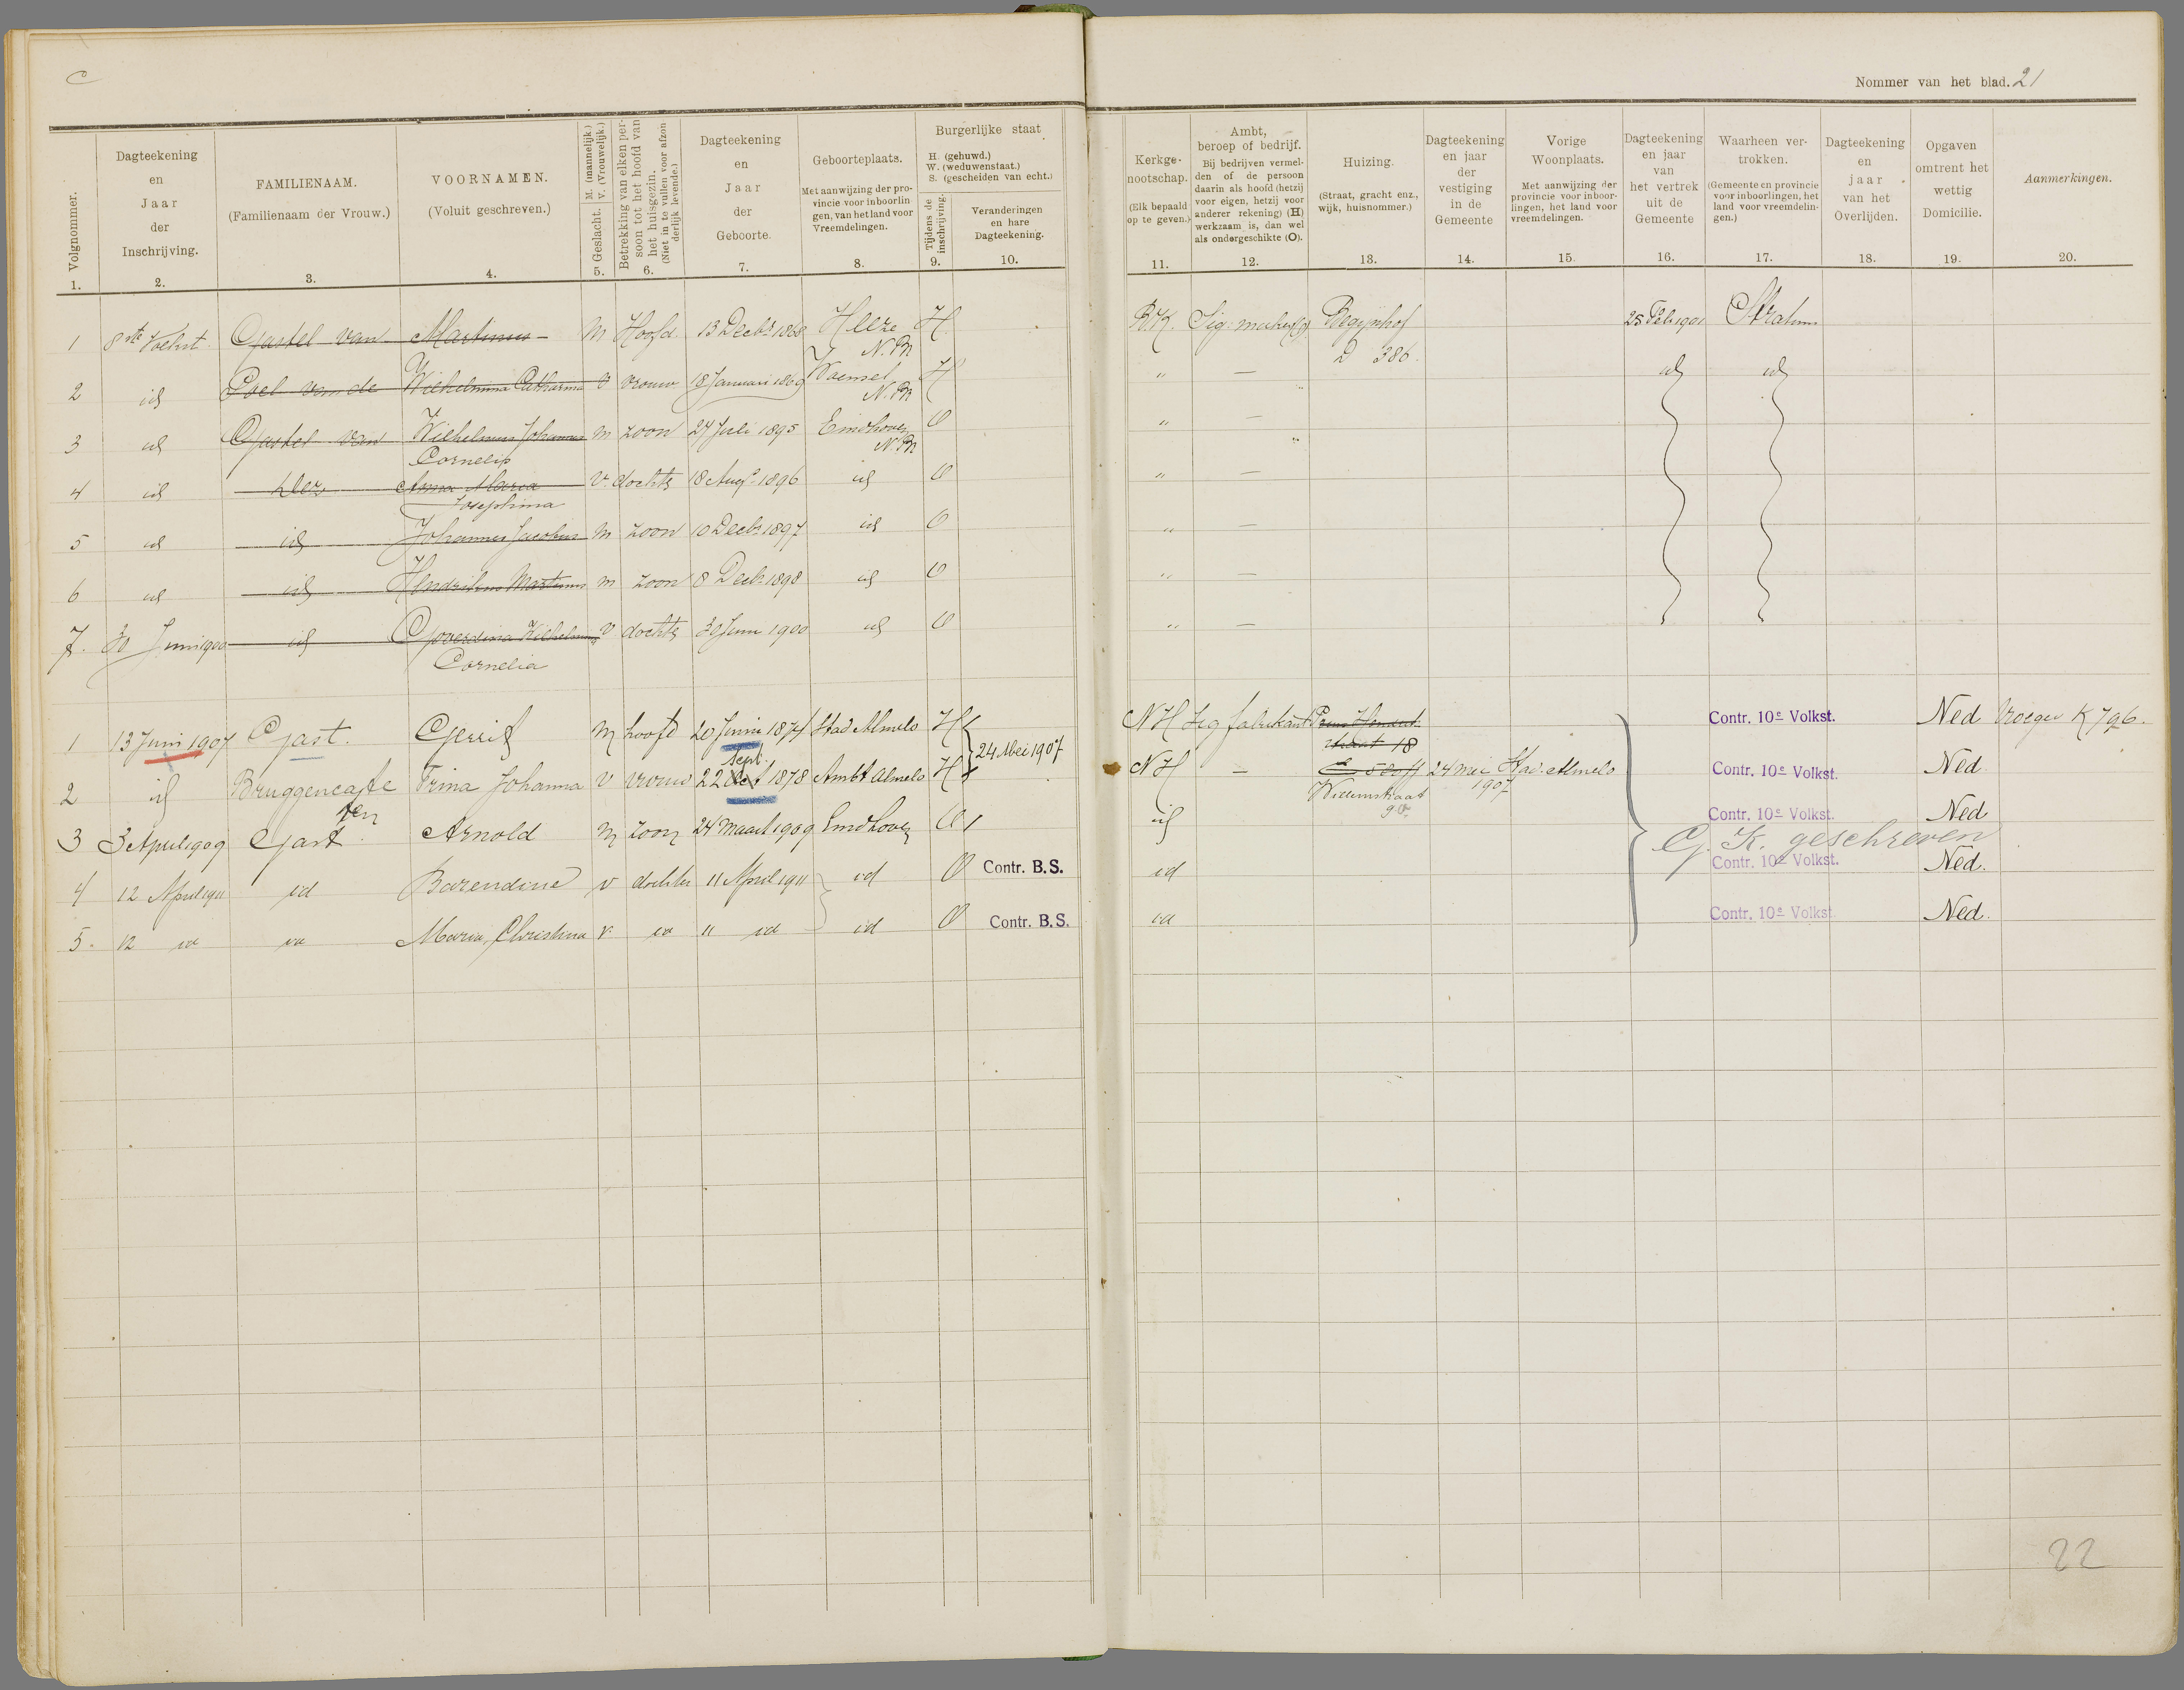 C
Nommer van het blad. 21
Volgnommer.
1.
Dagteekening
en
Jaar
der
Inschrijving.
2.
FAMILIENAAM.
(Familienaam der Vrouw.)
3.
VOORNAMEN.
(Voluit geschreven.)
4.
Geslacht. M. (mannelijk.)
V. (Vrouwelijk.)
5.
Betrekking van elken per-
soon tot het hoofd van
het huisgezin.
(Niet in te vullen voor afzon
derlijk levende.)
6.
Dagteekening
en
Jaar
der
Geboorte.
7.
Geboorteplaats.
Met aanwijzing der pro-
vincie voor inboorlin
gen, van het land voor
Vreemdelingen.
8.
Burgerlijke staat
H. (gehuwd.)
W. (weduwenstaat.)
S. (gescheiden van echt.)
Tijdens de
inschrijving.
9.
Veranderingen
en hare
Dagteekening.
10.
Kerkge-
nootschap.
(Elk bepaald
op te geven.)
11.
Ambt,
beroep of bedrijf.
Bij bedrijven vermel-
den of de persoon
daarin als hoofd (hetzij
voor eigen, hetzij voor
anderer rekening) (H)
werkzaam is, dan wel
als ondergeschikte (O).
12.
Huizing.
(Straat, gracht enz.,
wijk, huisnommer.)
13.
Dagteekening
en jaar
der
vestiging
in de
Gemeente
14.
Vorige
Woonplaats.
Met aanwijzing der
provincie voor inboor-
lingen, het land voor
vreemdelingen.
15.
Dagteekening
en jaar
van
het vertrek
uit de
Gemeente
16.
Waarheen ver-
trokken.
(Gemeente en provincie
voor inboorlingen, het
land voor vreemdelin-
gen.)
17.
Dagteekening
en
jaar
van het
Overlijden.
18.
Opgaven
omtrent het
wettig
Domicilie.
19.
Aanmerkingen.
20.
1 8ste Gastel van Martinus M Hoofd 13 Decbr 1868 Heeze H R.K. Sig. maker (O) Begijnhof 25 Feb 1901 Stratum
N. Br D 386.
2 id Poel van de Wilhelmina Catharina V vrouw 18 Januari 1869 Woensel H " — " id id
N. Br
3 id Gastel van Wilhelmus Johannes M zoon 27 Juli 1895 Eindhoven O " — "
Cornelis N. Br
4 id Anna Maria V. dochter 18 Aug. 1896 id O " —
Josephina
5 id id Johannes Jacobus M zoon 10 Decbr 1897 id O " —
6 id id Hendrikus Martinus m zoon 8 Decbr 1898 id O " —
7. 30 Juni 1900 id Goverdina Wilhelmina V dochter 30 Juni 1900 id O " —
Cornelia
1 13 Juni 1907 Gast. Gerrit M hoofd 20 Juni 1874 Stad Almelo H NH Sig fabrikant Prins Hendrik- Contr. 10e Volkst. Ned Vroeger K 796.
straat 18
24 Mei 1907
Sept.
2 id Bruggencate Trina Johanna V vrouw 22 Oct 1878 Ambt Almelo H NH — 24 mei Stad Almelo Contr. 10e Volkst. Ned
ten Willemstraat 1907
90
3 3 April 1909 Gast Arnold M zoon 24 Maart 1909 Eindhoven O id Contr. 10e Volkst. Ned
G. K. geschreven
4 12 April 1911 id Barendine v dochter 11 April 1911 id O Contr. B.S. id Contr. 10e Volkst. Ned.
5. 12 id id Maria, Christina v id 11 id id O Contr. B.S. id Contr. 10e Volkst. Ned.
22